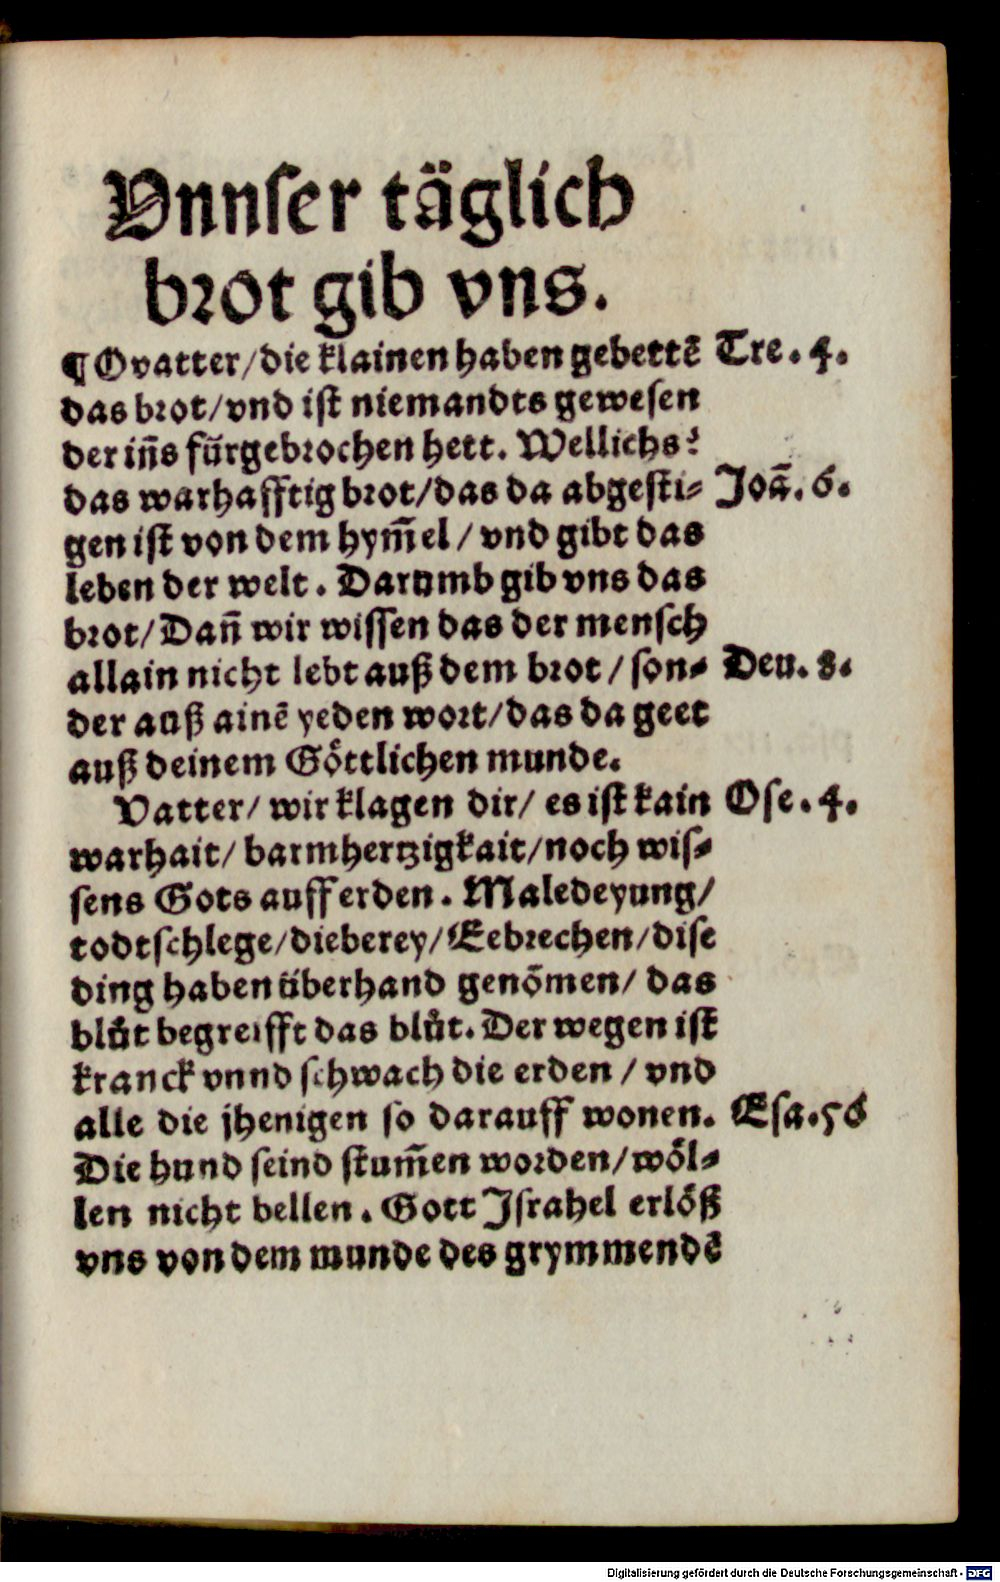 Vnnser täglich
brot gib vns.
¶ O vatter/die klainen haben gebettē Tre. 4.
das brot/vnd ist niemandts gewesen
der in̄s fürgebrochen hett. Wellichs?
das warhafftig brot/das da abgesti⸗ Joā. 6.
gen ist von dem hym̄el / vnd gibt das
leben der welt. Darumb gib vns das
brot/Dan̄ wir wissen das der mensch
allain nicht lebt auß dem brot / son⸗ Deu. 8.
der auß ainē yeden wort/das da geet
auß deinem Göttlichen munde.
Vatter/ wir klagen dir/ es ist kain Ose. 4.
warhait/ barmhertzigkait/noch wis⸗
sens Gots auff erden. Maledeyung/
todtschlege/dieberey/Eebrechen/dise
ding haben überhand genōmen/ das
blůt begreifft das blůt. Der wegen ist
kranck vnnd schwach die erden / vnd
alle die jhenigen so darauff wonen. Esa. 56
Die hund seind stum̄en worden/wöl⸗
len nicht bellen. Gott Jsrahel erlöß
vns von dem munde des grymmendē
Digitalisierung gefördert durch die Deutsche Forschungsgemeinschaft - DFG